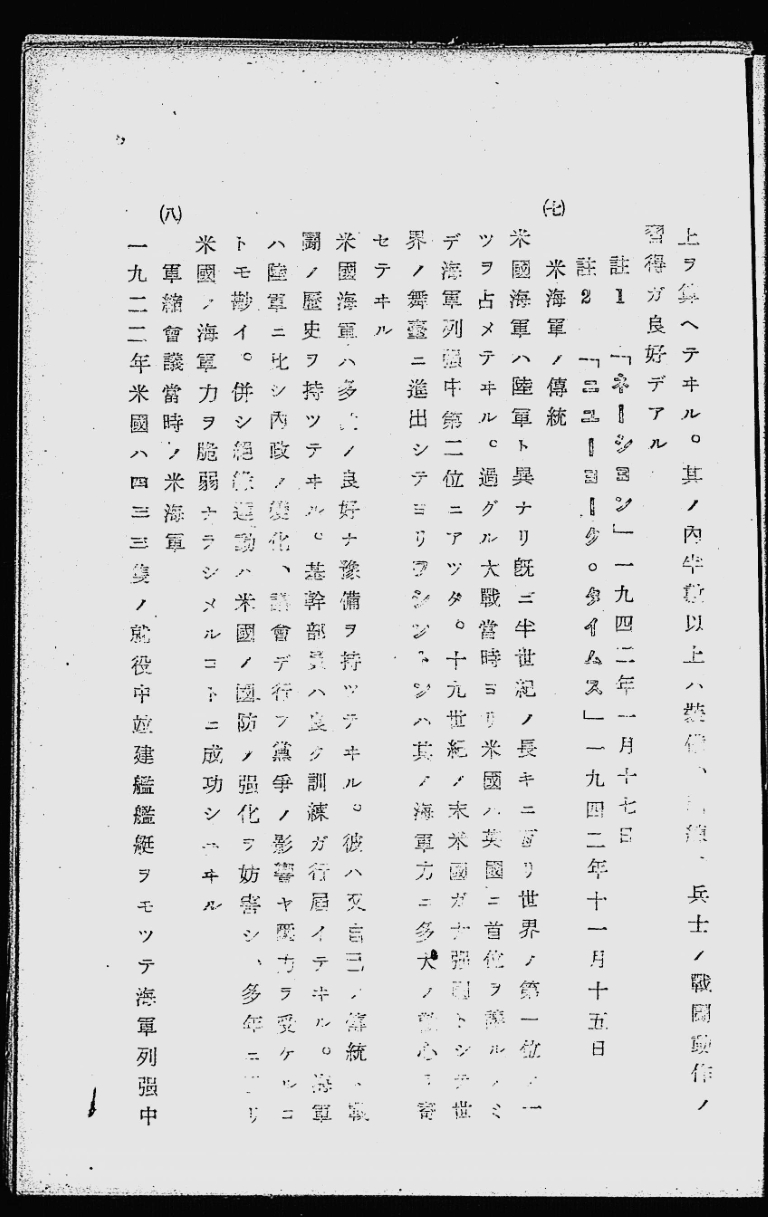 上ヲ算ヘテヰル。其ノ內半數以上ハ裝備、訓練、兵士ノ戰鬪動作ノ
習得ガ良好デアル
註1 「ネーション」一九四二年一月十七日
註2 「ニューヨーク。タイムス」一九四二年十一月十五日
(七) 米海軍ノ傳統
米國海軍ハ陸軍ト異ナリ既ニ半世紀ノ長キニ亘リ世界ノ第一位ノ一
ツヲ占メテヰル。過グル大戰當時ヨリ米國ハ英國ニ首位ヲ讓ルノミ
デ海軍列强中第二位ニアツタ。十九世紀ノ末米國ガ强國トシテ世
界ノ舞臺ニ進出シテヨリワシントンハ其ノ海軍力ニ多大ノ關心ヲ寄
セテヰル
米國海軍ハ多クノ良好ナ豫備ヲ持ツテヰル。彼ハ又自己ノ傳統、戰
鬪ノ歷史ヲ持ツテヰル。基幹部員ハ良ク訓練ガ行屆イテヰル。海軍
ハ陸軍ニ比シ內政ノ變化、議會デ行フ黨爭ノ影響ヤ壓力ヲ受ケルコ
トモ尠イ。併シ組織運動ハ米國ノ國防ノ强化ヲ妨害シ、多年ニ亘リ
米國ノ海軍力ヲ脆弱ナラシメルコトニ成功シヰル
(八) 軍縮會議當時ノ米海軍
一九二二年米國ハ四三三隻ノ就役中竝建艦艦艇ヲモツテ海軍列强中